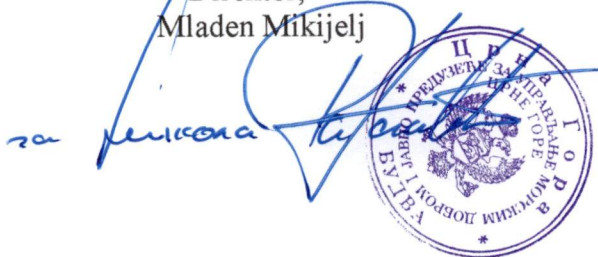 Mladen Mikijelj
за
Црна Гора
ЈАВНО ПРЕДУЗЕЋЕ ЗА УПРАВЉАЊЕ МОРСКИМ ДОБРОМ ЦРНЕ ГОРЕ
БУДВА I